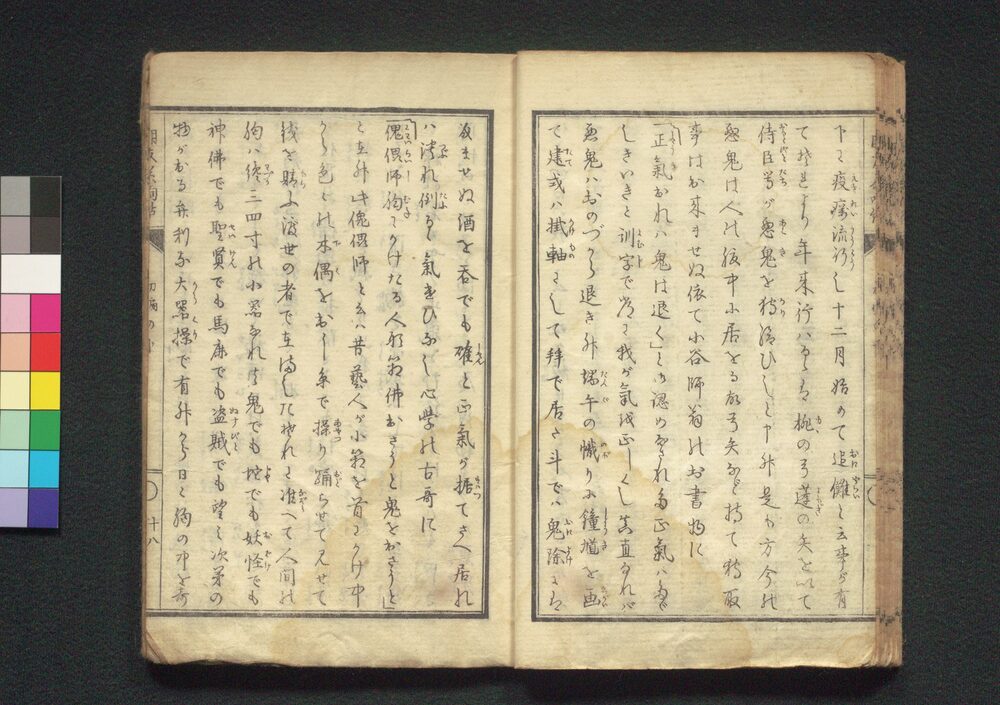 下に疫癘流行し十二月始めて追儺と云事が有
て夫より年来行はるゝ桃の弓蓬の矢を以て
侍臣等が悪鬼を狩給ひしと申升是も方今の
悪鬼は人の腹中に居をる故弓矢など持て狩取
事はお来ませぬ依て小谷師翁のお書物に
「正氣なれハ鬼は退く」と御認めなされ正氣ハ
しきいきと訓字で常に我が氣を正しくし真直なれバ
悪鬼ハおのづから退き升端午の幟りに鐘馗を画
て建或ハ掛軸にして拝で居た斗でハ鬼除にハ
成ませぬ酒を呑でも確と正氣が据てさへ居れ
ハ潰れ倒るゝ氣遣ひなし心學の古哥に
「傀儡師胸にかけたる人形箱佛出さうと鬼を出さうと」
と在升此傀儡師と云ハ昔藝人が小箱を首にかけ中
から色々の木偶を出し糸で操り踊らせて見せて
銭を貰ふ渡世の者で在ましたそれに准へて人間の
胸ハ纔三四寸の小器なれ共鬼でも蛇でも妖怪でも
神佛でも聖賢でも馬鹿でも盗賊でも望み次第の
物が出る弁利な大器操で有升から日々胸の中を
十八